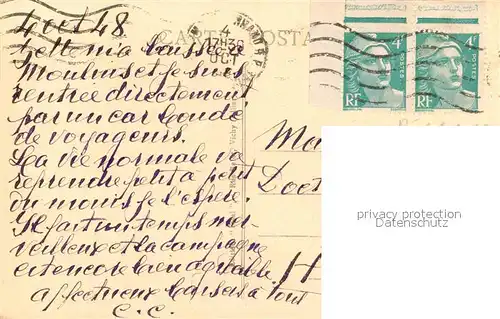 4 oct 48
CARTE POSTALE
4
17H30
OCT
4F
POSTES
RF
4F
POSTES
RF
Moulins et je suis
rentrée directement
par un car bondé
de voyageurs.
La vie normale va
reprendre petit à petit
du moins je l'espère.
Il fait un temps mer-
veilleux et la campagne
est encore bien agréable.
affectueux baisers à tous
C. C.
Doct
H
privacy protection
Datenschutz